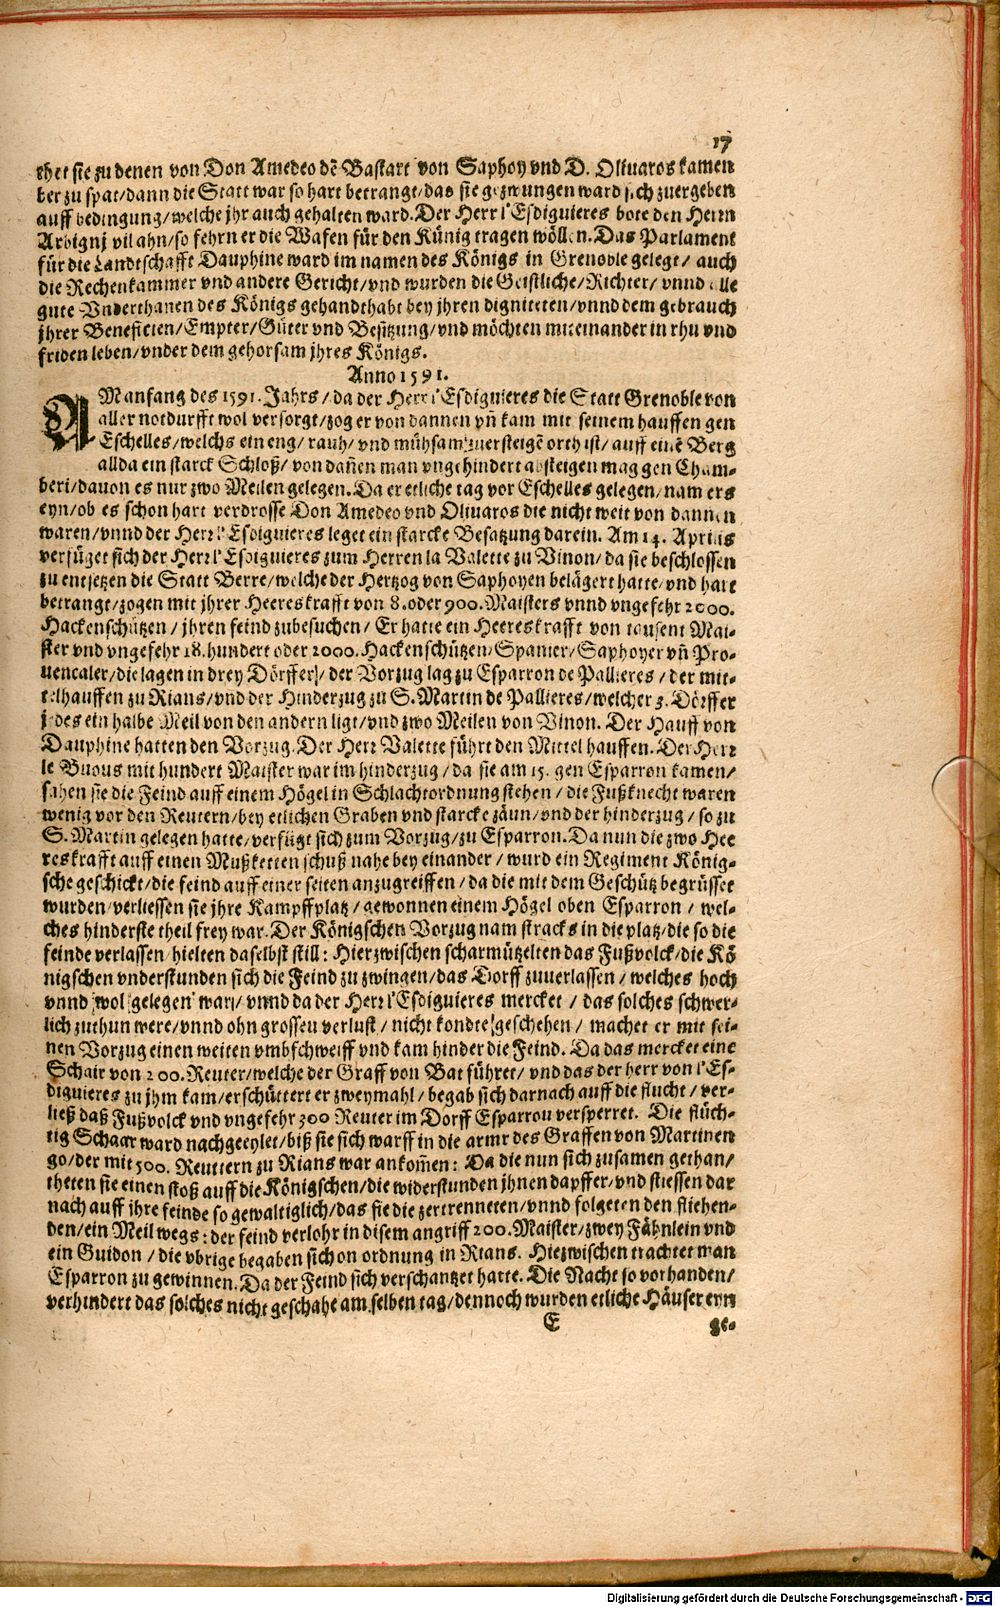 17
thet sie zu denen von Don Amedeo dē Bastart von Saphoy vnd D. Oliuaros kamen
ber zu spat/dann die Statt war so hart betrangt/das sie gezwungen ward sich zuergeben
auff bedingung/welche jhr auch gehalten ward. Der Herr l'Esdiguieres bote den Herrn
Arbignj vil ahn/so fehrn er die Wafen für den Künig tragen wöllen. Das Parlament
für die Landtschafft Dauphine ward im namen des Königs in Grenoble gelegt/ auch
die Rechenkammer vnd andere Gericht/vnd wurden die Geistliche/Richter/ vnnd alle
gute Vnderthanen des Königs gehandthabt bey jhren digniteten/vnnd dem gebrauch
jhrer Beneficien/Empter/Güter vnd Besitzung/vnd möchten miteinander in rhu vnd
friden leben/vnder dem gehorsam jhres Königs.
Anno 1591.
AManfang des 1591. Jahrs/da der Herr l'Esdiguieres die Statt Grenoble von
aller notdurfft wol versorgt/zog er von dannen vn̄ kam mit seinem hauffen gen
Eschelles/welchs ein eng/rauh/vnd mühsam zuersteigē orth ist/auff einē Berg
allda ein starck Schloß/von dan̄en man vngehindert absteigen mag gen Cham-
beri/dauon es nur zwo Meilen gelegen. Da er etliche tag vor Eschelles gelegen/nam ers
eyn/ob es schon hart verdrosse Don Amedeo vnd Oliuaros die nicht weit von dannen
waren/vnnd der Herr l'Esdiguieres leget ein starcke Besatzung darein. Am 14. Aprilis
verfüget sich der Herr l'Esdiguieres zum Herren la Valette zu Vinon/da sie beschlossen
zu entsetzen die Statt Berre/welche der Hertzog von Saphoyen belägert hatte/vnd hart
betrangt/zogen mit jhrer Heereskrafft von 8. oder 900. Maisters vnnd vngefehr 2000.
Hackenschützen/jhren feind zubesuchen/Er hatte ein Heereskrafft von tausent Mai-
ster vnd vngefehr 18. hundert oder 2000. Hackenschützen/Spanier/Saphoyer vn̄ Pro-
uencaler/die lagen in drey Dörffer/der Vorzug lag zu Esparron de Pallieres/der mit-
telhauffen zu Rians/vnd der Hinderzug zu S. Martin de Pallieres/welcher 3. Dörffer
jedes ein halbe Meil von den andern ligt/vnd zwo Meilen von Vinon. Der Hauff von
Dauphine hatten den Vorzug. Der Herr Valette führt den Mittel hauffen. Der Herr
le Buous mit hundert Maister war im hinderzug/da sie am 15. gen Esparron kamen/
sahen sie die Feind auff einem Högel in Schlachtordnung stehen/die Fußknecht waren
wenig vor den Reutern/bey etlichen Graben vnd starcke zäun/vnd der hinderzug/so zu
S. Martin gelegen hatte/verfügt sich zum Vorzug/zu Esparron. Da nun die zwo Hee
reskrafft auff einen Mußketten schuß nahe bey einander/wurd ein Regiment König-
sche geschickt/die feind auff einer seiten anzugreiffen/da die mit dem Geschütz begrüsset
wurden/verliessen sie jhre Kampffplatz/gewonnen einem Högel oben Esparron/wel-
ches hinderste theil frey war. Der Königschen Vorzug nam stracks in die platz/die so die
feinde verlassen/hielten daselbst still: Hierzwischen scharmützelten das Fußvolck/die Kö
nigschen vnderstunden sich die Feind zu zwingen/das Dorff zuuerlassen/welches hoch
vnnd wol gelegen war/vnnd da der Herr l'Esdiguieres mercket/das solches schwer-
lich zuthun were/vnnd ohn grossen verlust/nicht kondte geschehen/machet er mit sei-
nen Vorzug einen weiten vmbschweiff vnd kam hinder die Feind. Da das mercket eine
Schair von 200. Reuter/welche der Graff von Bat führet/vnd das der herr von l'Es-
diguieres zu jhm kam/erschüttert er zweymahl/begab sich darnach auff die flucht/ver-
ließ daß Fußvolck vnd vngefehr 300 Reuter im Dorff Esparron versperret. Die flüch-
tig Schaar ward nachgeeylet/biß sie sich warff in die armr des Graffen von Martinen
go/der mit 500. Reuttern zu Rians war ankom̄en: Da die nun sich zusamen gethan/
theten sie einen stoß auff die Königschen/die widerstunden jhnen dapffer/vnd stiessen dar
nach auff ihre feinde so gewaltiglich/das sie die zertrenneten/vnnd folgeten den fliehen-
den/ein Meil wegs: der feind verlohr in disem angriff 200. Maister/zwey Fähnlein vnd
ein Guidon/die vbrige begaben sich on ordnung in Rians. Hiezwischen trachtet man
Esparron zu gewinnen. Da der Feind sich verschantzet hatte. Die Nacht so vorhanden/
verhindert das solches nicht geschahe am selben tag/dennoch wurden etliche Häuser eyn
E ge-
Digitalisierung gefördert durch die Deutsche Forschungsgemeinschaft - DFG